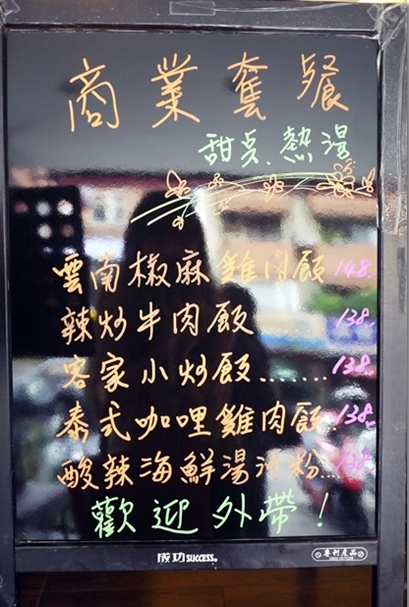 商業套餐
甜点、熱湯
雲南椒麻雞肉飯 148.
辣炒牛肉飯 138..
客家小炒飯....... 138..
泰式咖哩雞肉飯.. 138..
酸辣海鮮湯河粉... 138..
歡迎外帶！
成功 SUCCESS®
專利產品